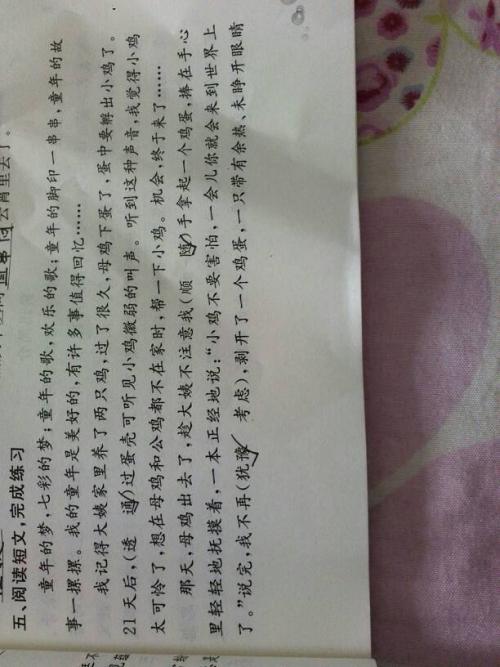 云霄里去了。
五、阅读短文，完成练习
童年的梦，七彩的梦；童年的歌，欢乐的歌；童年的脚印一串串，童年的故
事一摞摞。我的童年是美好的，有许多事值得回忆……
我记得大姨家里养了两只鸡，过了很久，母鸡下蛋了，蛋中要孵出小鸡了。
21天后，(透 通)过蛋壳可听见小鸡微弱的叫声。听到这种声音，我觉得小鸡
太可怜了，想在母鸡和公鸡都不在家时，帮一下小鸡。机会，终于来了……
那天，母鸡出去了，趁大姨不注意我(顺 随)手拿起一个鸡蛋，捧在手心
里轻轻地抚摸着，一本正经地说：“小鸡不要害怕，一会儿你就会来到世界上
了。”说完，我不再(犹豫 考虑)，剥开了一个鸡蛋，一只带有余热、未睁开眼睛